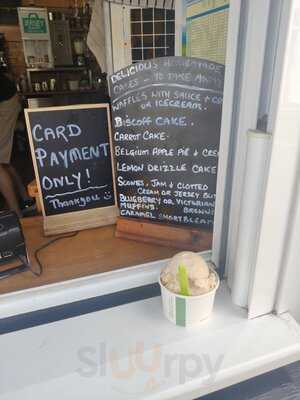 CARD
PAYMENT
ONLY!
Thankyou
DELICIOUS HOMEMADE
CAKES - TO TAKE AWAY
WAFFLES WITH SAUCE + CR
OR ICECREAM.
BISCOFF CAKE.
CARROT CAKE.
BELGIUM APPLE PIE & CRE
LEMON DRIZZLE CAKE
SCONES, JAM & CLOTTED
CREAM OR JERSEY BUT
BLUEBERRY OR VICTORIAN
MUFFINS.
CARAMEL SHORTBREAD
Sluurpy